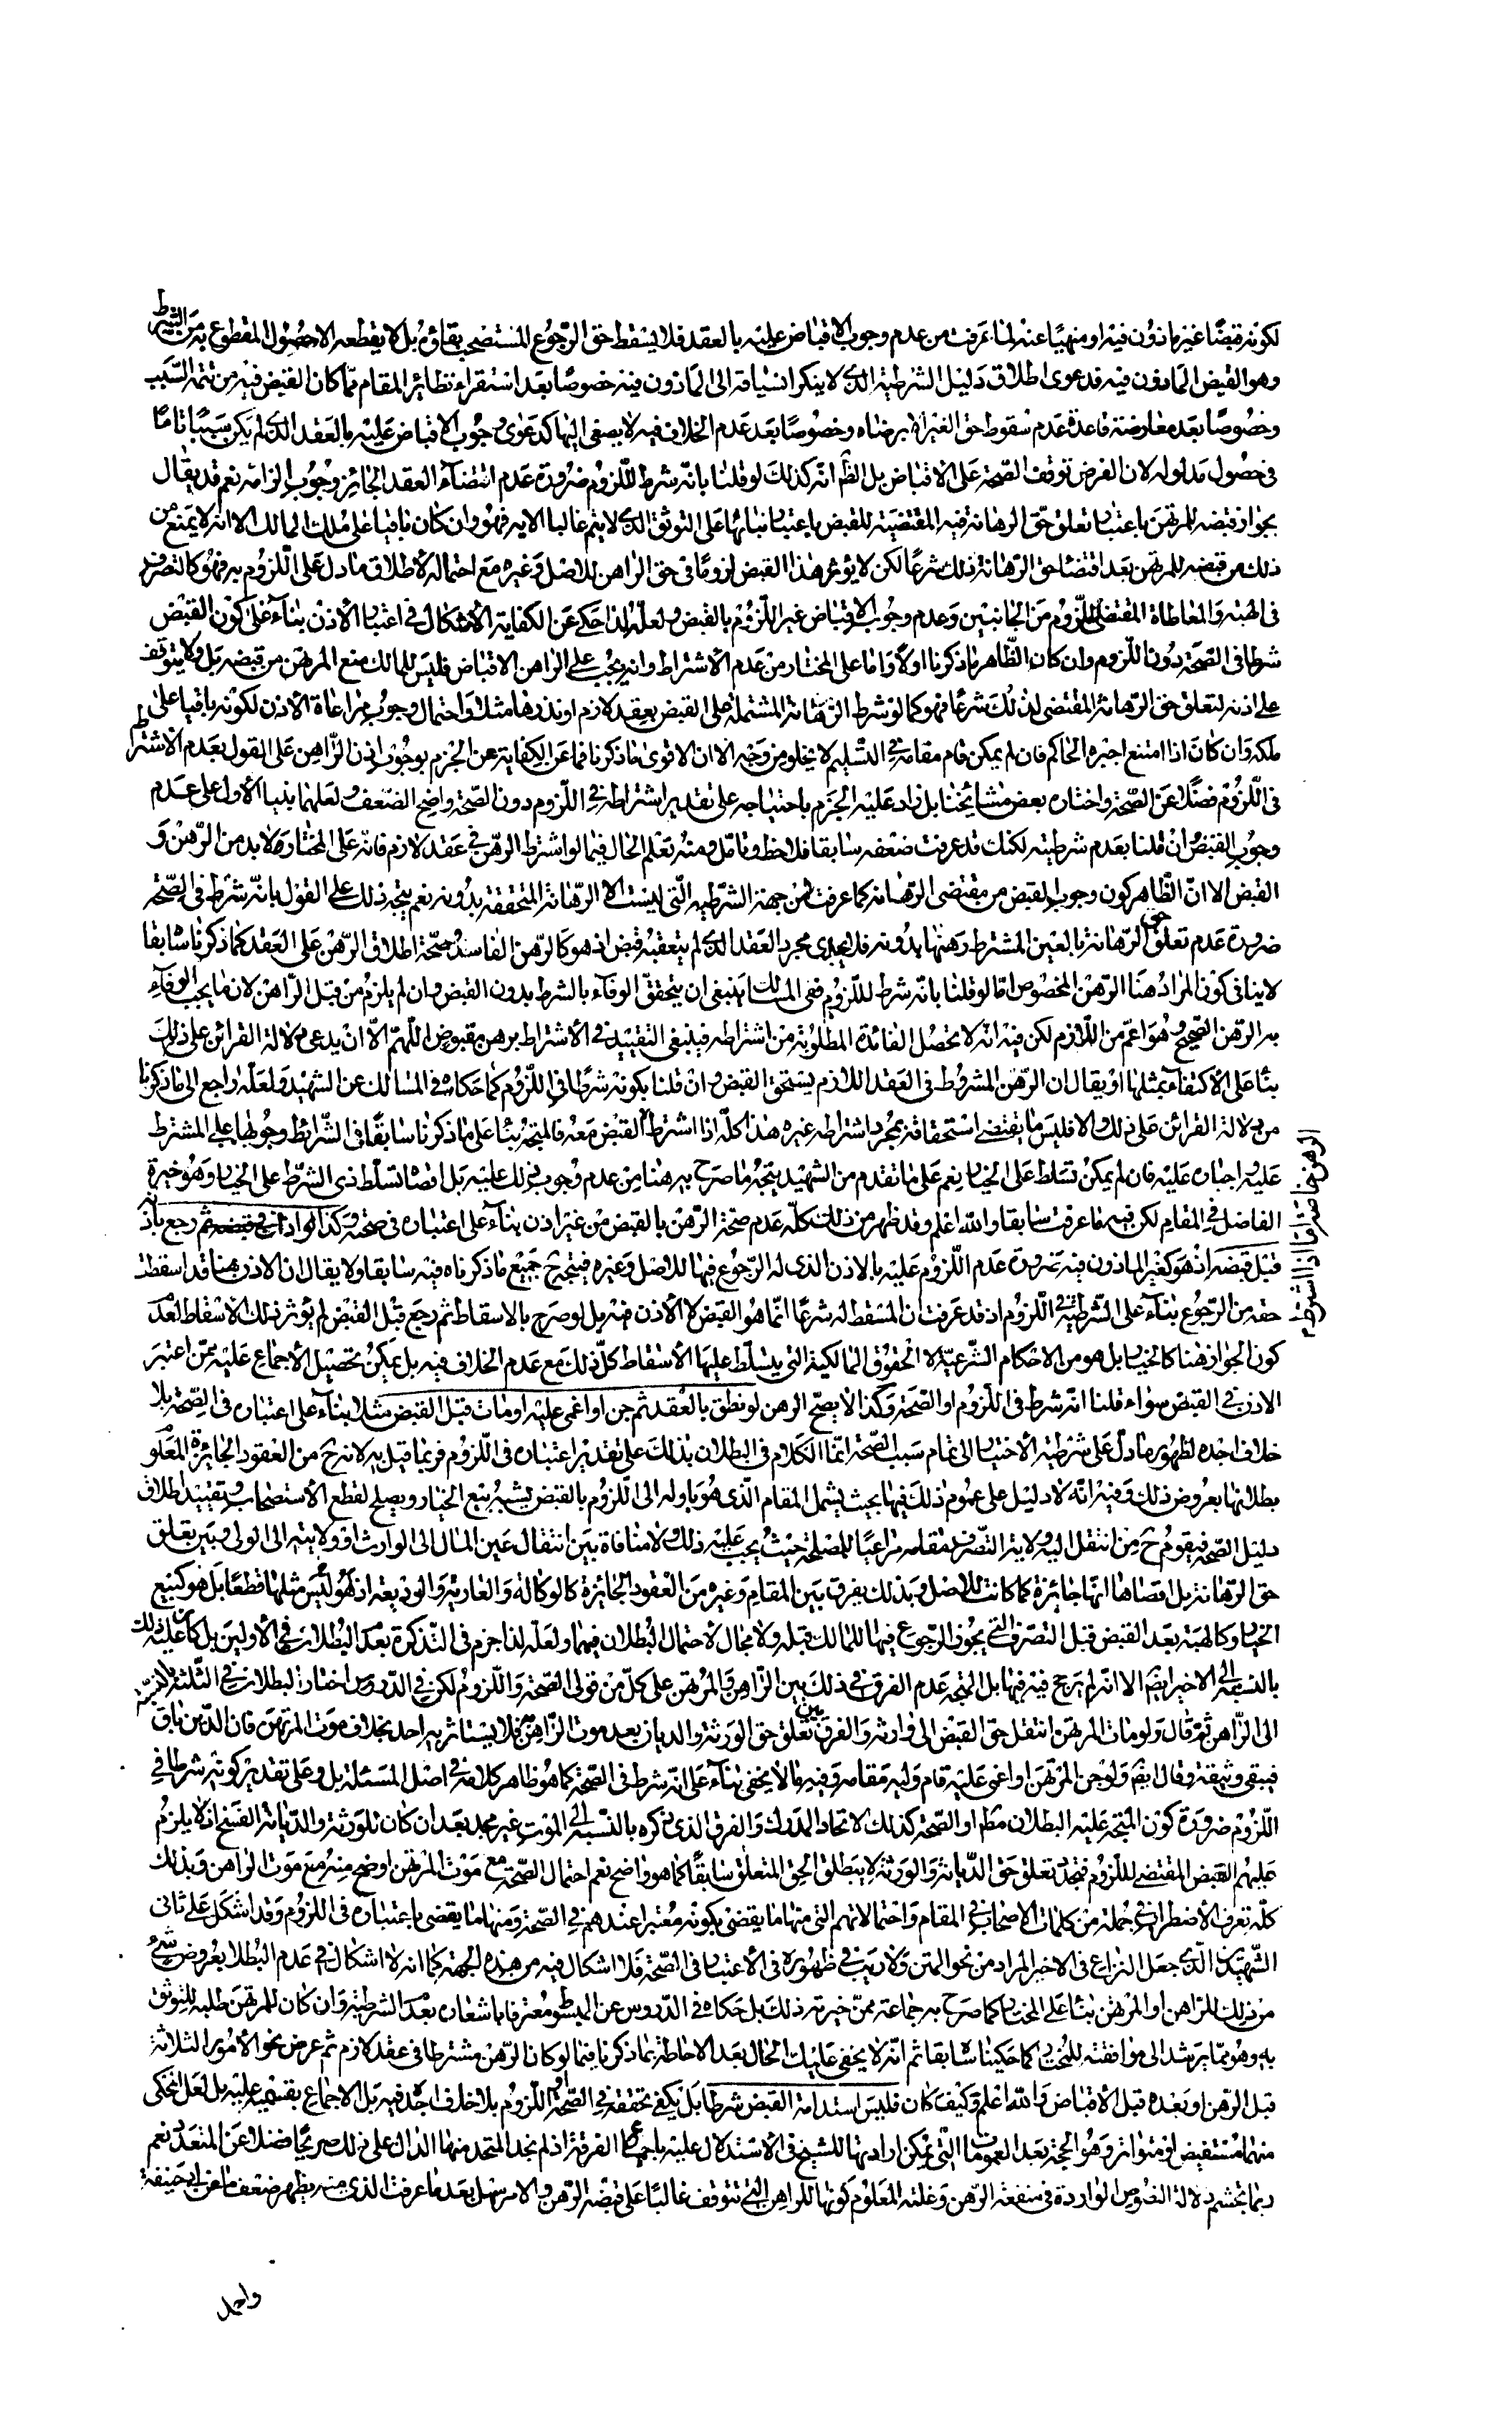 لكونه قبضا غير ماذون فيه او منهيا عنه لما عرفت من عدم وجوب الاقباض عليه بالعقد فلا يسقط حق الرجوع المستصحب بقاؤه بل لا يقطعه الا حصول المقطوع به من الشرط
وهو القبض الماذون فيه فدعوى اطلاق دليل الشرطية الذي لا ينكر انسياقه الى الماذون فيه خصوصا بعد استقراء نظائر المقام مما كان القبض فيه من تتمة السبب
وخصوصا بعد معارضته قاعدة عدم سقوط حق الغير الا برضاه وخصوصا بعد عدم الخلاف فيه لا يصغى اليها كدعوى وجوب الاقباض عليه بالعقد الذي لم يكن سببا تاما
في حصول مدلوله لان الفرض توقف الصحة على الاقباض بل الظ انه كذلك لو قلنا بانه شرط للزوم ضرورة عدم اقتضاء العقد الجائز وجوب الزامه نعم قد يقال
بجواز قبضه للمرتهن باعتبار تعلق حق الرهانة فيه المقتضية للقبض باعتبار بنائها على التوثق الذي لا يتم غالبا الا به فهو وان كان باقيا على ملك المالك الا انه لا يمنع من
ذلك من قبضه للمرتهن بعد اقتضاء حق الرهانة ذلك شرعا لكن لا يؤثر هذا القبض لزوما في حق الراهن للاصل وغيره مع احتماله لاطلاق ما دل على اللزوم به فهو كالتصرف
في الهبة والمعاطاة المقتضي للزوم من الجانبين وعدم وجوب الاقباض غير اللزوم بالقبض ولعله لذا حكي عن الكفاية الاشكال في اعتبار الاذن بناء على كون القبض
شرطا في الصحة دون اللزوم وان كان الظاهر ما ذكرنا اولا واما على المختار من عدم الاشتراط وانه يجب على الراهن الاقباض فليس للمالك منع المرتهن من قبضه بل ولا يتوقف
على اذنه لتعلق حق الرهانة المقتضي لذلك شرعا فهو كما لو شرط الرهانة المشتملة على القبض بعقد لازم او نذرها مثلا واحتمال وجوب مراعاة الاذن لكونه باقيا على
ملكه وان كان اذا امتنع اجبره الحاكم فان لم يمكن قام مقامه في التسليم لا يخلو من وجه الا ان الاقوى ما ذكرنا فما عن الكفاية من الجزم بوجوب اذن الراهن على القول بعدم الاشتراط
في اللزوم فضلا عن الصحة واختاره بعض مشايخنا بل زاد عليه الجزم باحتياجه على تقدير اشتراطه في اللزوم دون الصحة واضح الضعف ولعلهما بنيا الاول على عدم
وجوب القبض ان قلنا بعدم شرطيته لكنك قد عرفت ضعفه سابقا فلاحظ وتامل ومنه تعلم الحال فيما لو اشترط الرهن في عقد لازم فانه على المختار لا بد من الرهن و
القبض الا ان الظاهر كون وجوب القبض من مقتضى الرهانة كما عرفت لا من جهة الشرطية التي ليست الا الرهانة المتحققة بدونه نعم يتجه ذلك على القول بانه شرط في الصحة
ضرورة عدم تعلق حق الرهانة بالعين المشترط رهنها بدونه فلا يجدي مجرد العقد الذي لم يتعقبه قبض اذ هو كالرهن الفاسد وصحة اطلاق الرهن على العقد كما ذكرنا سابقا
لا ينافي كون المراد هنا الرهن المخصوص اما لو قلنا بانه شرط للزوم ففي المسالك ينبغي ان يتحقق الوفاء بالشرط بدون القبض وان لم يلزم من قبل الراهن لان ما يجب الوفاء
به الرهن الصحيح وهو اعم من اللازم لكن فيه انه لا تحصل الفائدة المطلوبة من اشتراطه فينبغي التقييد في الاشتراط برهن مقبوض اللهم الا ان يدعى دلالة القرائن على ذلك
بناء على الاكتفاء بمثلها او يقال ان الرهن المشروط في العقد اللازم يستحق القبض وان قلنا بكونه شرطا في اللزوم كما حكاه في المسالك عن الشهيد ولعله راجع الى ما ذكرنا
من دلالة القرائن على ذلك والا فليس ما يقتضي استحقاقه بمجرد اشتراطه غيره هذا كله اذا اشترط القبض معه فالمتجه بناء على ما ذكرنا سابقا في الشرائط وجوبها على المشترط
عليه اجباره عليه فان لم يمكن تسلط على الخيار نعم على ما تقدم من الشهيد يتجه ما صرح به هنا من عدم وجوب ذلك عليه بل اقصاه تسلط ذي الشرط على الخيار وهو خيرة
الفاضل في المقام لكن فيه ما عرفت سابقا والله اعلم وقد ظهر من ذلك كله عدم صحة الرهن بالقبض من غير اذن بناء على اعتباره في صحته وكذا لو اذن في قبضه ثم رجع باذنه
قبل قبضه اذ هو كغير الماذون فيه ضرورة عدم اللزوم عليه بالاذن الذي له الرجوع فيها للاصل وغيره فيتجه ح جميع ما ذكرناه فيه سابقا ولا يقال ان الاذن هنا قد اسقطت
حقه من الرجوع بناء على الشرطية في اللزوم اذ قد عرفت ان المسقط له شرعا انما هو القبض لا الاذن فيه بل لو صرح بالاسقاط ثم رجع قبل القبض لم يؤثر ذلك الاسقاط لعدم
كون الجواز هنا كالخيار بل هو من الاحكام الشرعية لا الحقوق المالكية التي يتسلط عليها الاسقاط كل ذلك مع عدم الخلاف فيه بل يمكن تحصيل الاجماع عليه ممن اعتبر
الاذن في القبض سواء قلنا انه شرط في اللزوم او الصحة وكذا لا يصح الرهن لو نطق بالعقد ثم جن او اغمي عليه او مات قبل القبض مثلا بناء على اعتباره في الصحة بلا
خلاف اجده لظهور ما دل على شرطية الاختيار الى تمام سبب الصحة انما الكلام في البطلان بذلك على تقدير اعتباره في اللزوم فربما قيل به لانه ح من العقود الجائزة المعلوم
بطلانها بعروض ذلك وفيه انه لا دليل على عموم ذلك فيها بحيث يشمل المقام الذي هو باوله الى اللزوم بالقبض يشبه بيع الخيار ويصلح لقطع الاستصحاب وتقييد اطلاق
دليل الصحة فيقوم ح من انتقل اليه ولاية التصرف مقامه مراعيا للمصلحة حيث يجب عليه ذلك ولا منافاة بين انتقال عين المال الى الوارث او ولايته الى الولي وبين تعلق
حق الرهانة بل اقصاها انها جائزة كما كانت للاصل وبذلك يفرق بين المقام وغيره من العقود الجائزة كالوكالة والعارية والوديعة اذ هو ليس مثلها قطعا بل هو كبيع
الخيار وكالهبة بعد القبض قبل التصرف التي يجوز الرجوع فيها للمالك قبله ولا مجال لاحتمال البطلان فيهما ولعله لذا جزم في التذكرة بعدم البطلان في الاولين بل كان عليه ذلك
بالنسبة الى الاخير ايض الا انه لم يرجح فيه فيها بل المتجه عدم الفرق في ذلك بين الراهن والمرتهن على كل من قولي الصحة واللزوم لكن في الدروس اختار البطلان في الثلثة بالنسبة
الى الراهن ثم قال ولو مات المرتهن انتقل حق القبض الى وارثه والفرق بين تعلق حق الورثة والديان بعد موت الراهن فلا يستاثر به احد بخلاف موت المرتهن فان الدين باق
فيبقى وثيقته وقال ايض ولو جن المرتهن او اغمي عليه قام وليه مقامه وفيه ما لا يخفى بناء على انه شرط في الصحة كما هو ظاهر كلامه في اصل المسئلة بل وعلى تقدير كونه شرطا في
اللزوم ضرورة كون المتجه عليه البطلان مط او الصحة كذلك لاتحاد المدرك والفرق الذي ذكره بالنسبة الى الموت غير مجد بعد ان كان للورثة والديانة الفسخ اذ لا يلزم
عليهم القبض المقتضي للزوم فتجدد تعلق حق الديانة والورثة لا يبطل الحق المتعلق سابقا كما هو واضح نعم احتمال الصحة مع موت المرتهن اوضح منه مع موت الراهن وبذلك
كله تعرف الاضطراب في جملة من كلمات الاصحاب في المقام واحتمالاتهم التي منها ما يقضي بكونه معتبرا عندهم في الصحة ومنها ما يقضي باعتباره في اللزوم وقد اشكل على ثاني
الشهيدين الذي جعل النزاع في الاخير المراد من نحو المتن ولا ريب في ظهوره في الاعتبار في الصحة فلا اشكال فيه من هذه الجهة كما انه لا اشكال في عدم البطلان بعروض شيء
من ذلك للراهن او المرتهن بناء على المختار كما صرح به جماعة ممن خيرته ذلك بل حكاه في الدروس عن المبسوط معترفا باشعاره بعدم الشرطية وان كان للمرتهن طلبه للتوثق
به وهو مما يرشد الى موافقته للمختار كما حكيناه سابقا ثم انه لا يخفى عليك الحال بعد الاحاطة بما ذكرنا فيما لو كان الرهن مشترطا في عقد لازم ثم عرض نحو الامور الثلاثة
قبل الرهن او بعده قبل الاقباض والله اعلم وكيف كان فليس استدامة القبض شرطا بل يكفي تحققه في الصحة او اللزوم بلا خلاف اجده فيه بل الاجماع بقسميه عليه بل لعل المحكي
منهما مستفيض او متواتر وهو الحجة بعد العمومات التي يمكن ارادتها للشيخ في الاستدلال عليه باجماع الفرقة اذ لم نجد المتحد منها الدال على ذلك صريحا فضلا عن المتعدد نعم
ربما تجشم دلالة النصوص الواردة في منفعة الرهن وغلته المعلوم كونها للراهن التي تتوقف غالبا على قبضه الرهن والامر سهل بعد ما عرفت الذي منه يظهر ضعف ما عن ابي حنيفة
الرهن خاصة اما اذا اشترطهم
واحمل